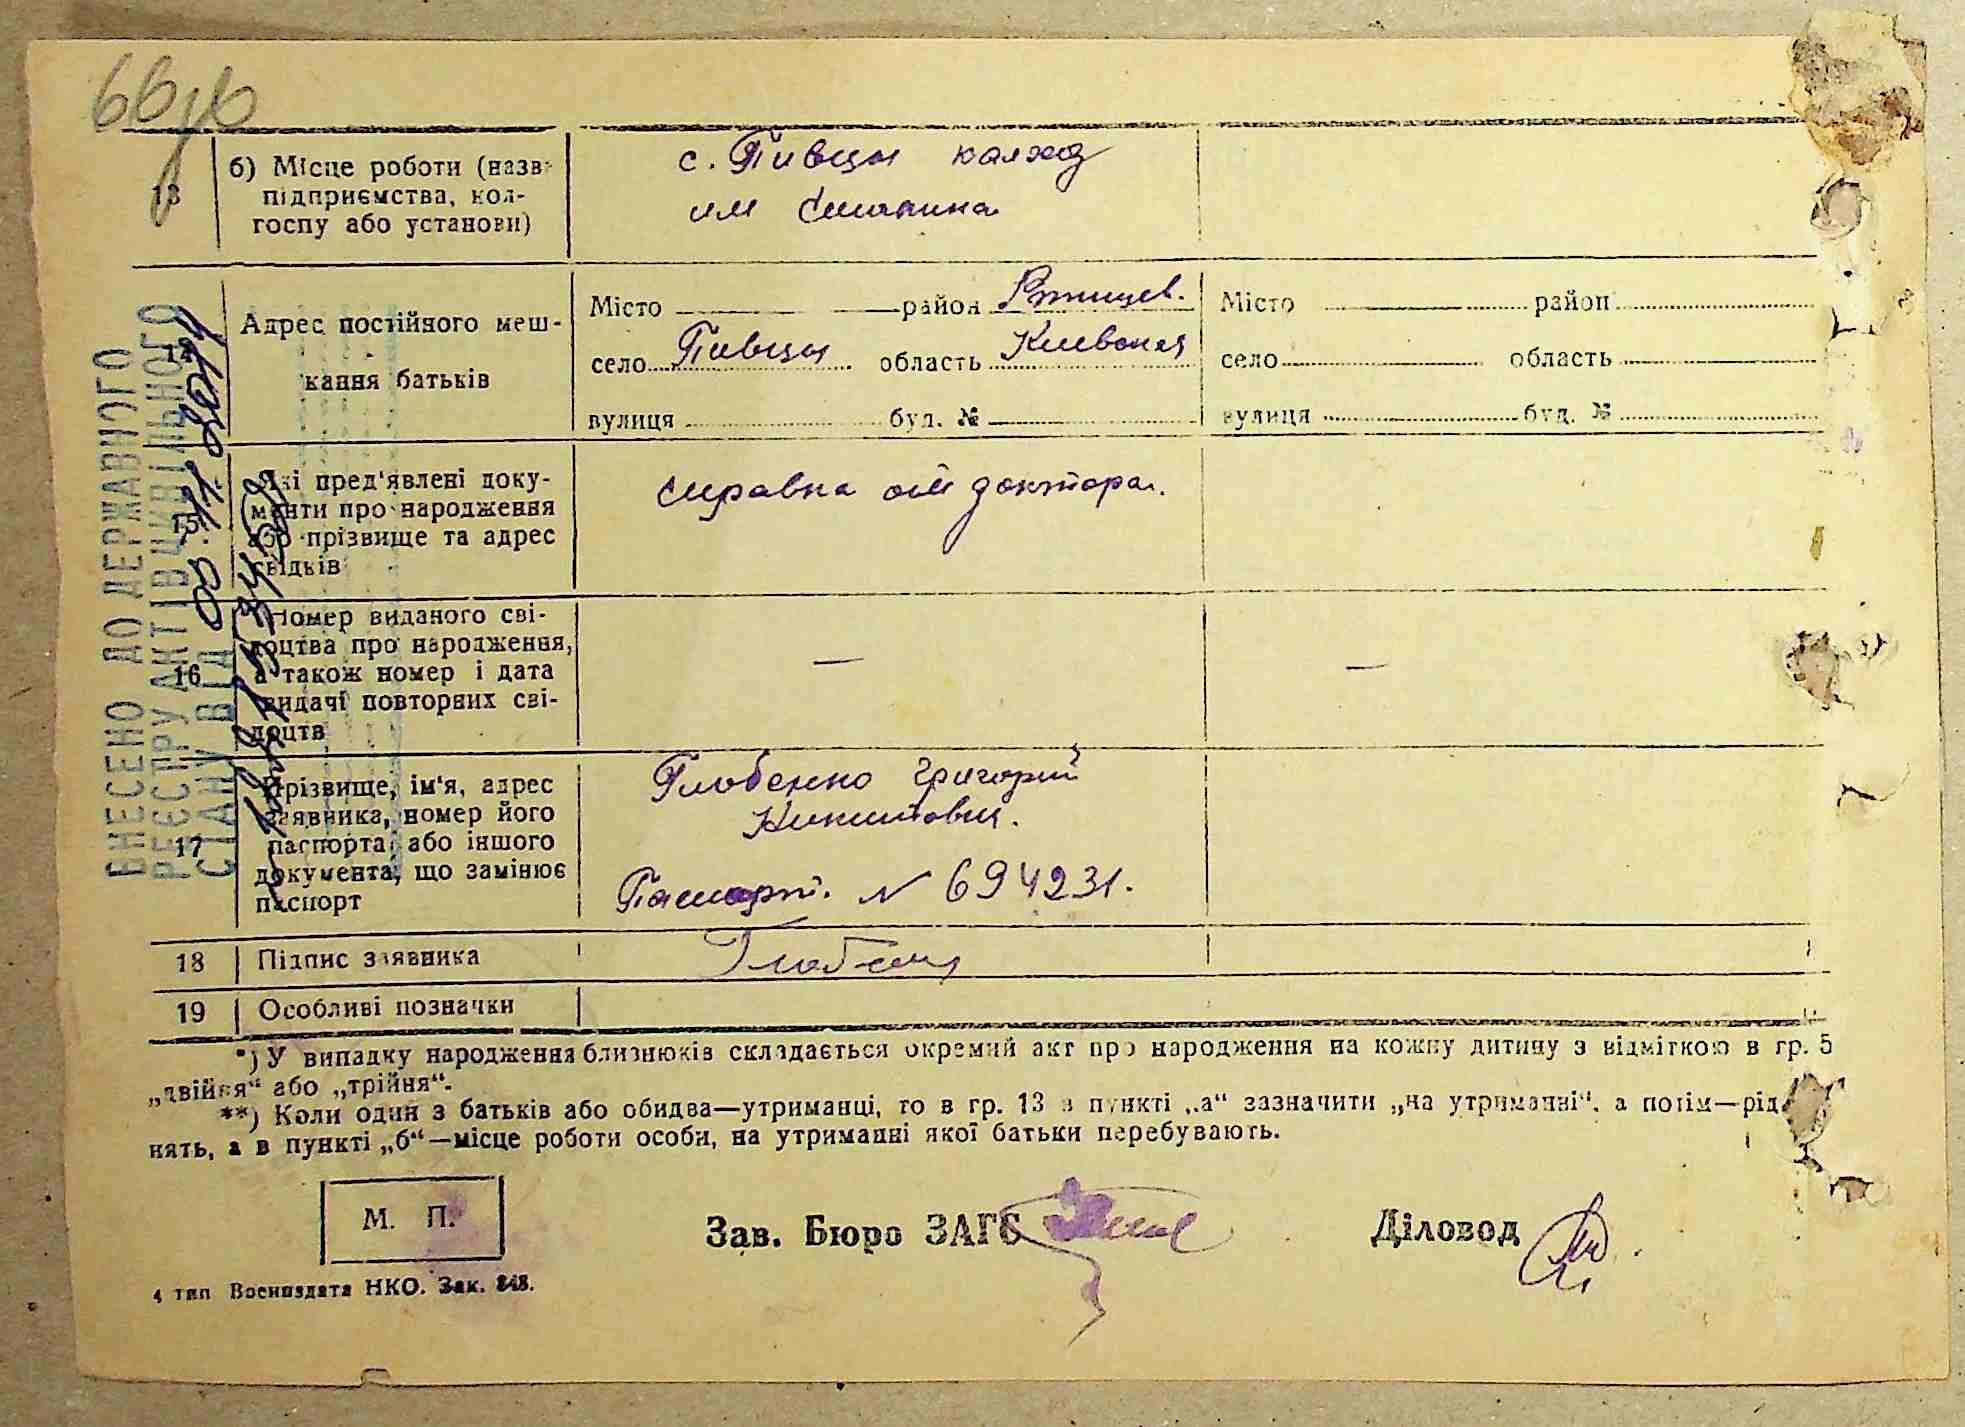 13
б) Місце роботи (назв
підприємства, кол-
госпу або установи)
с. Пивцы колхоз
им Сталина
14
Адрес постійного меш-
кання батьків
Місто район Ржищев.
село Пивцы область Киевская
вулиця буд. №
Місто район
село область
вулиця буд. №
15
Які пред'явлені доку-
менти про народження
або прізвище та адрес
свідків
справка от доктора.
16
Номер виданого сві-
доцтва про народження,
а також номер і дата
видачі повторних сві-
доцтв
—
—
17
Прізвище, ім'я, адрес
заявника, номер його
паспорта, або іншого
документа, що замінює
паспорт
Глобенко Григорий
Никитович.
Паспорт. N 694231.
18 Підпис заявника
19 Особливі позначки
*) У випадку народження близнюків складається окремий акт про народження на кожну дитину з відміткою в гр. 5
„двійня“ або „трійня“.
**) Коли один з батьків або обидва—утриманці, то в гр. 13 в пункті „а“ зазначити „на утриманні“, а потім—рід
нять, а в пункті „б“—місце роботи особи, на утриманні якої батьки перебувають.
М. П.
Зав. Бюро ЗАГС
Діловод
4 тип Воениздата НКО. Зак. 848.
ВНЕСЕНО ДО ДЕРЖАВНОГО
РЕЄСТРУ АКТІВ ЦИВІЛЬНОГО
СТАНУ ВІД